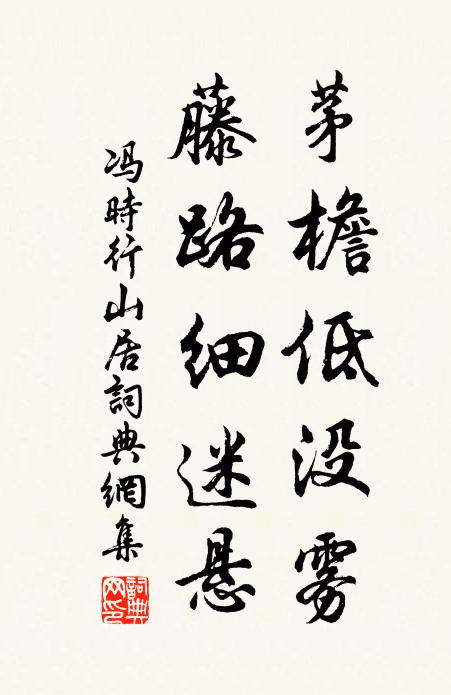 茅檐低没雾
藤路细迷悬
冯時行山居詞典網集
詞典网印